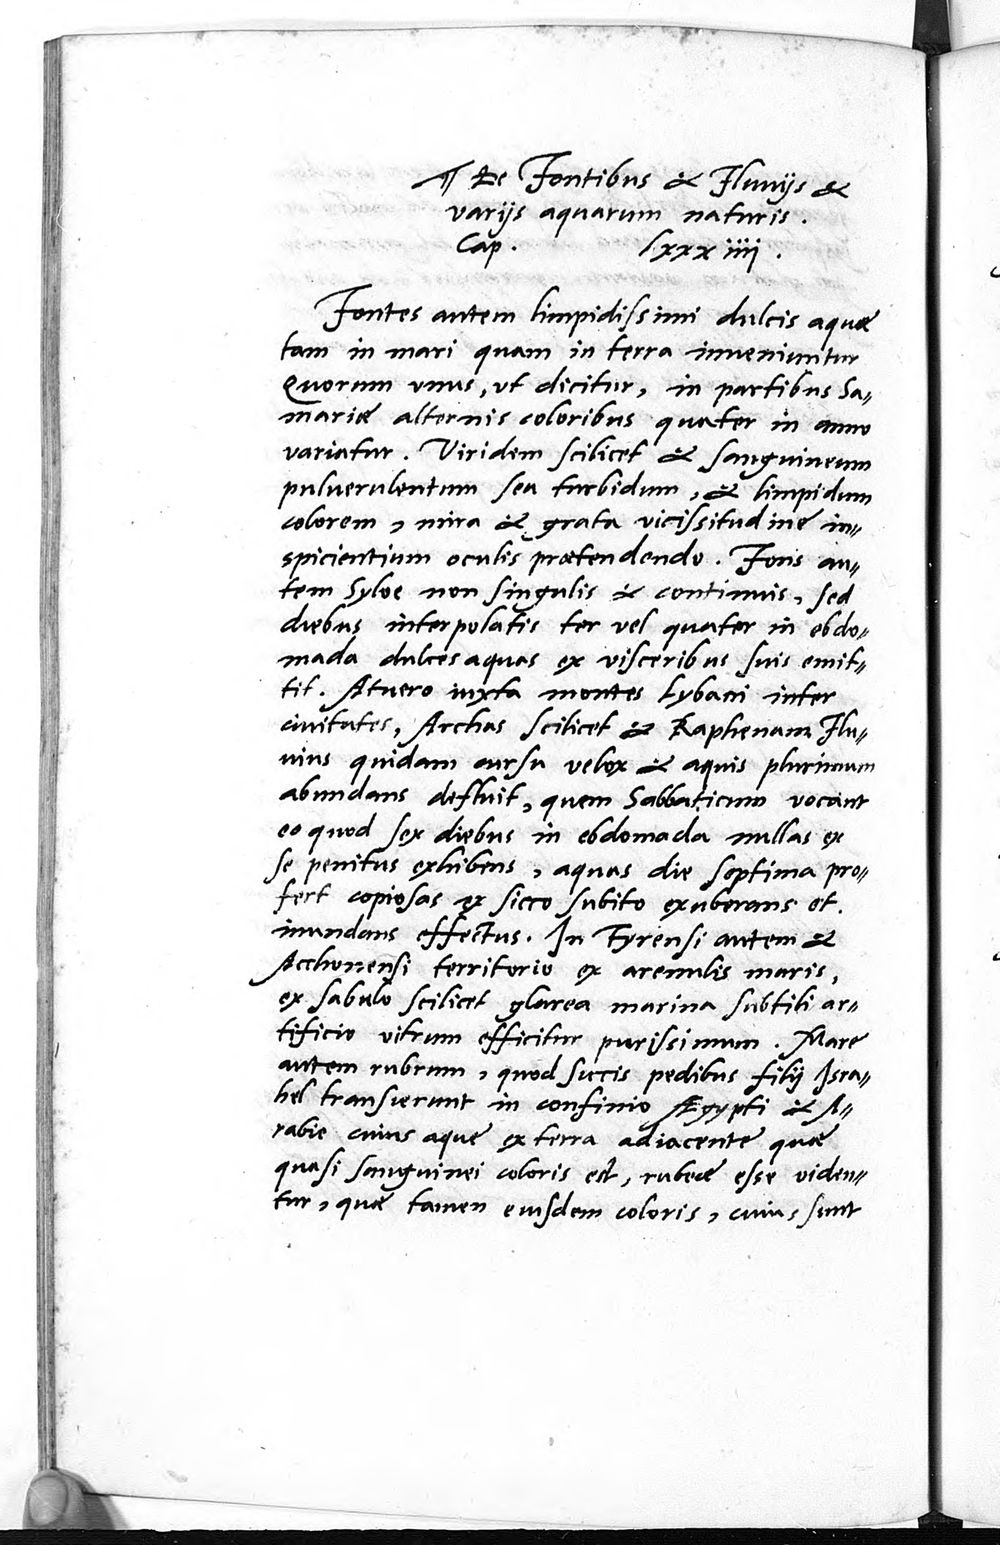 ¶ De Fontibus & Fluuijs &
varijs aquarum naturis.
Cap. lxxxiiij.
Fontes autem limpidissimi dulcis aquæ
tam in mari quam in terra inueniuntur
Quorum vnus, vt dicitur, in partibus Sa„
mariæ alternis coloribus quater in anno
variatur. Viridem scilicet & sanguineum
puluerulentum seu turbidum, & limpidum
colorem, mira & grata vicissitudine in„
spicientium oculis prætendendo. Fons au„
tem Syloe non singulis & continuis, sed
diebus interpolatis ter vel quater in ebdo„
mada dulces aquas ex visceribus suis emit„
tit. Atuero iuxta montes Lybani inter
ciuitates, Archas scilicet & Raphenam Flu„
uius quidam cursu velox & aquis plurimum
abundans defluit, quem Sabbaticum vocant
eo quod sex diebus in ebdomada nullas ex
se penitus exhibens, aquas die septima pro„
fert copiosas ex sicco subito exuberans et.
inundans effectus. In Tyrensi autem &
Acchonensi territorio ex arenulis maris,
ex sabulo scilicet glarea marina subtili ar„
tificio vitrum efficitur purissimum. Mare
autem rubrum, quod siccis pedibus filij Isra„
hel transierunt in confinio Ægypti & A„
rabie cuius aque ex terra adiacente quæ
quasi sanguinei coloris est, rubeæ esse viden„
tur, quæ tamen eiusdem coloris, cuius sunt